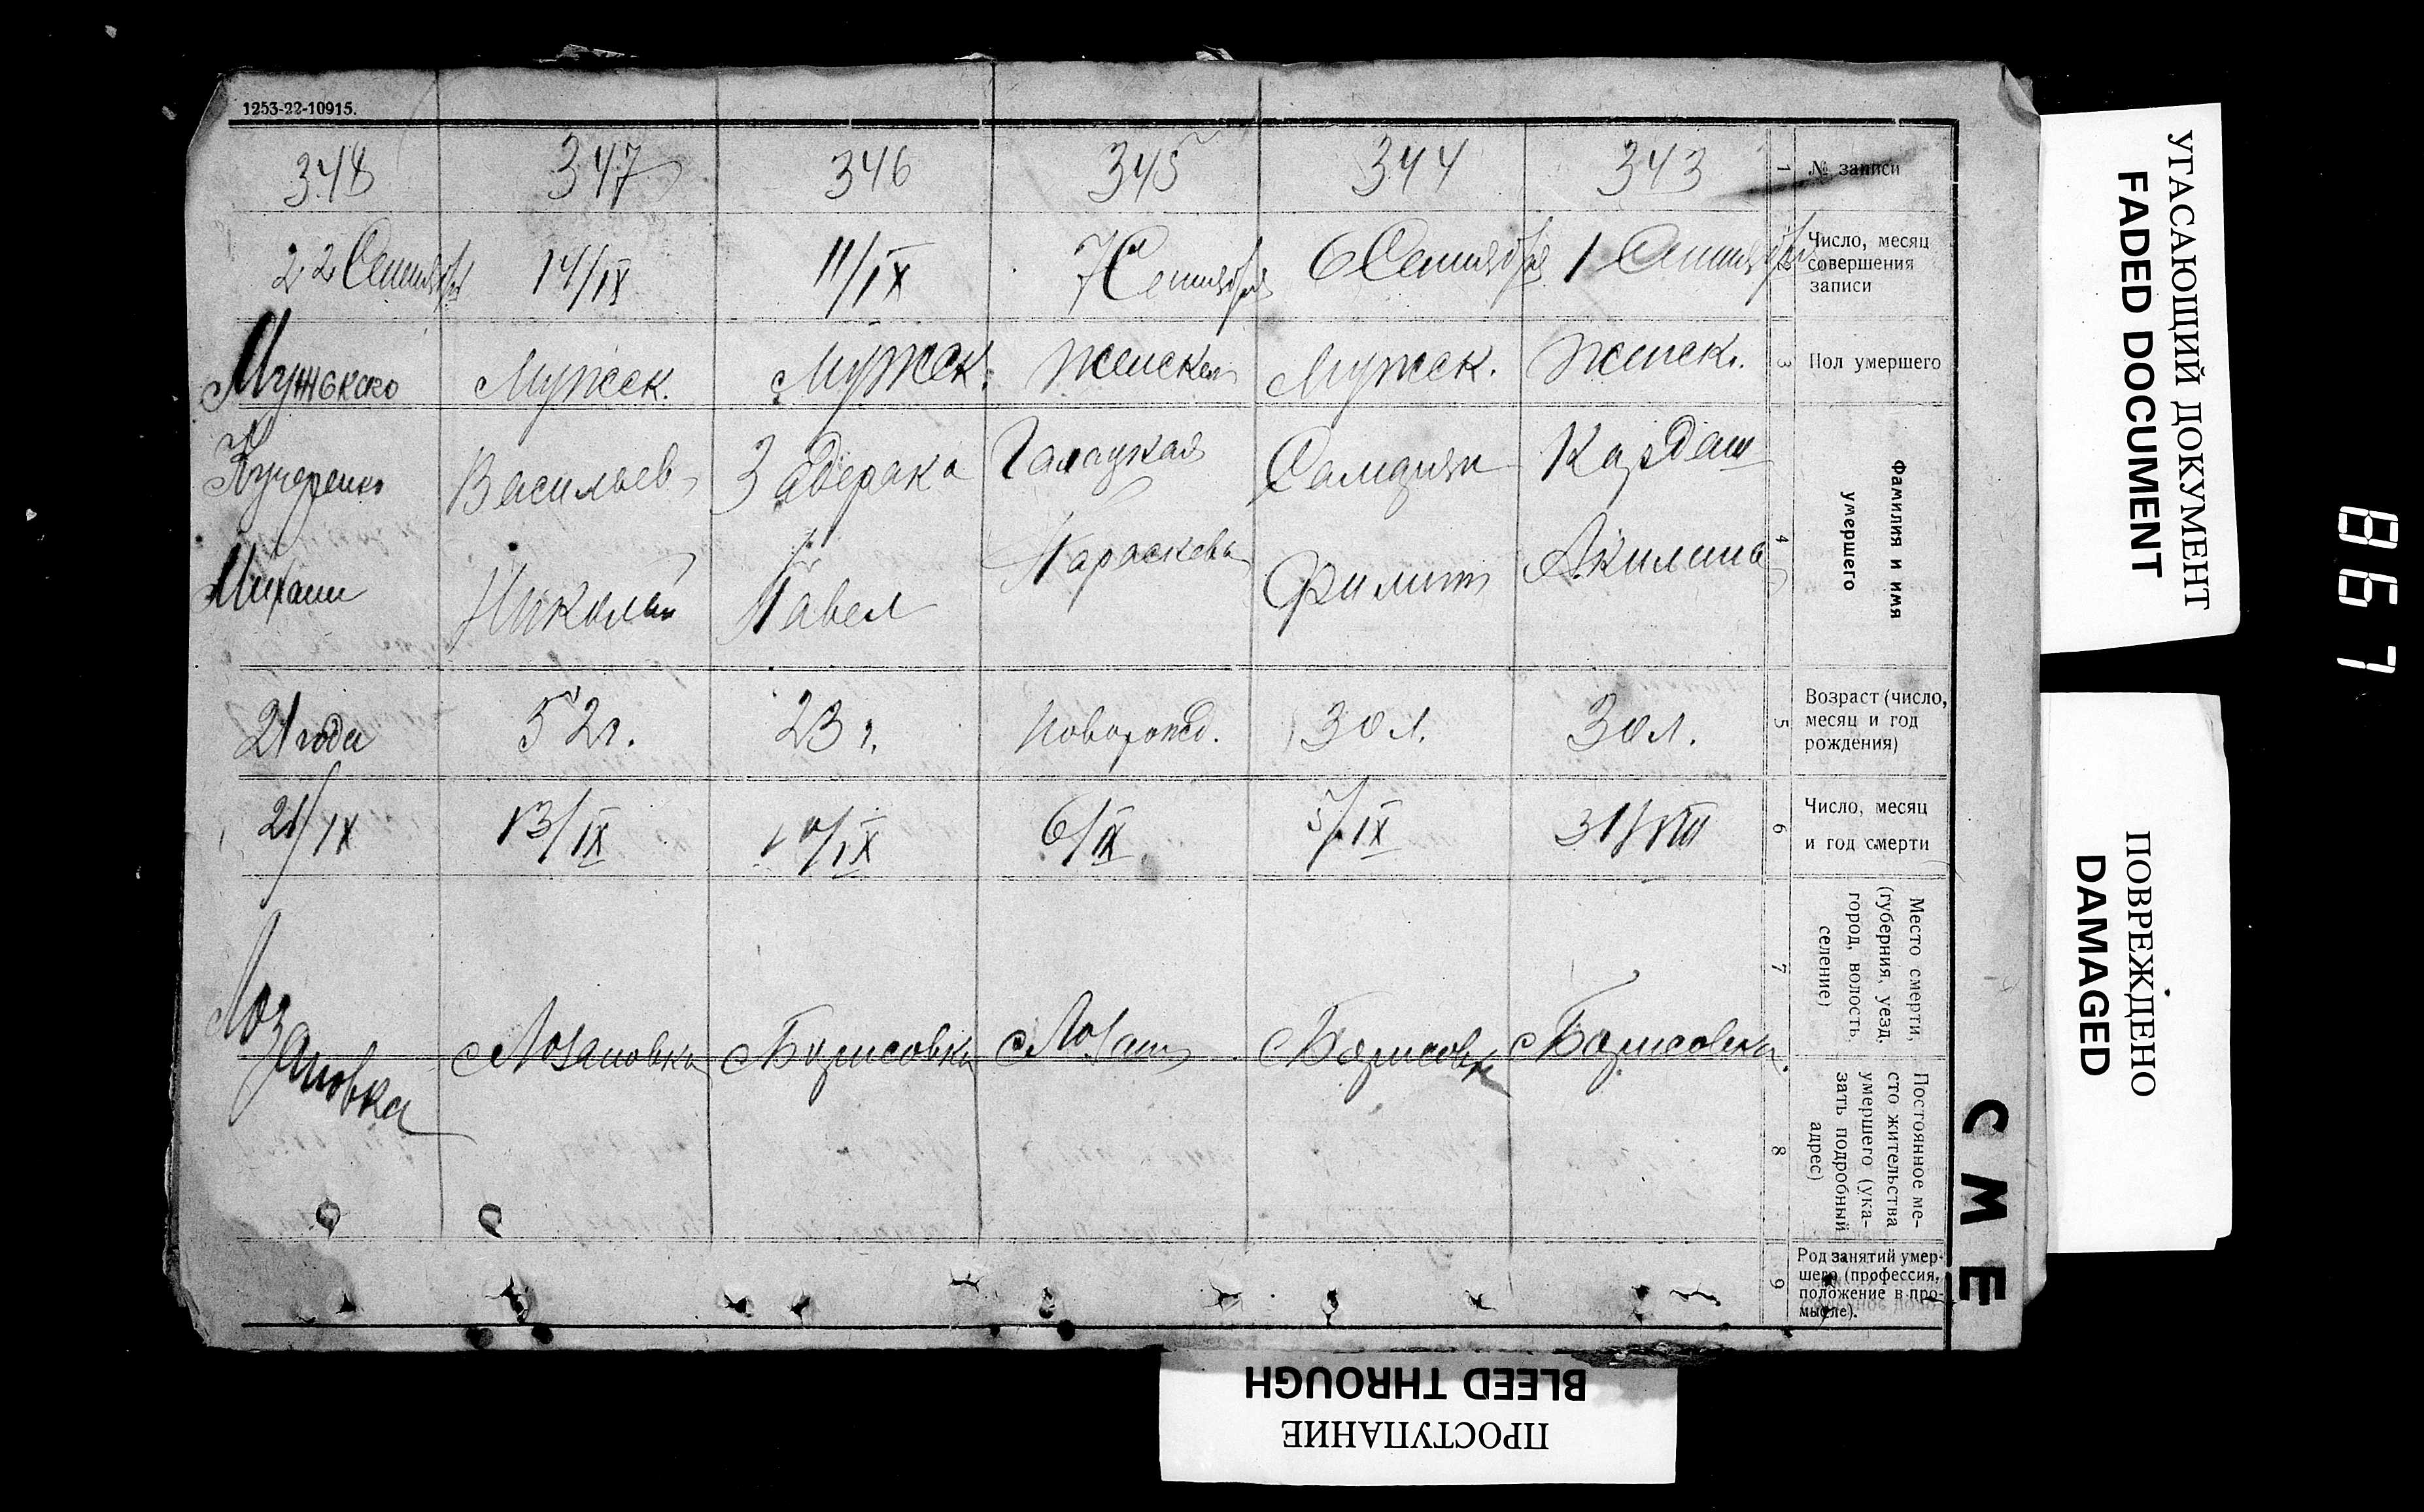 1253-22-10915.
348 347 346 345 344 343 1 № записи
22 Сентября 14/IX 11/IX 7 Сентября 6 Сентября 1 Сентября 2 Число, месяц
совершения
записи
Мужского Мужск. Мужск. Женская Мужск. Женск. 3 Пол умершего
Кучеренко Васильев Задерака Галацкая Кардаш
Михаил Николай Павел Параскева Филипп Акилина
4 Фамилия и имя
умершего
21 года 52 г. 23 г.Новорожд. 30 л. 30 л. 5 Возраст (число,
месяц и год
рождения)
21/IX 13/IX 10/IX 6/IX 5/IX 31/VIII 6 Число, месяц
и год смерти
Лозановка Лозановка Борисовка Лозан Борисовк Борисовка
7 Место смерти,
(губерния, уезд,
город, волость,
селение)
8 Постоянное ме-
сто жительства
умершего (ука-
зать подробный
адрес)
9 Род занятий умер-
шего (профессия,
положение в про-
мысле).
СМЕ
УГАСАЮЩИЙ ДОКУМЕНТ
FADED DOCUMENT
ПОВРЕЖДЕНО
DAMAGED
867
ПРОСТУПАНИЕ
BLEED THROUGH